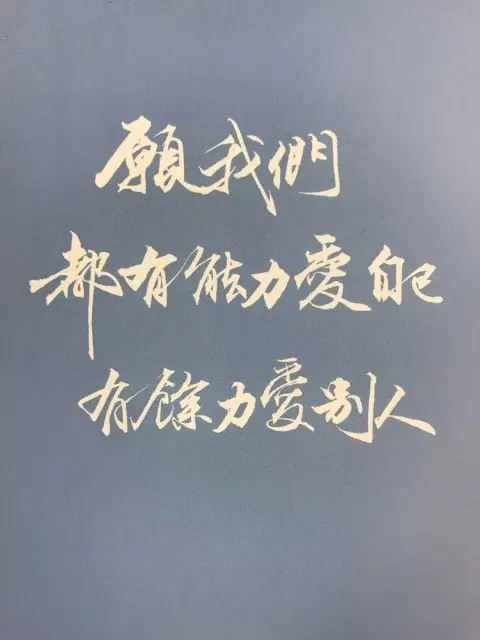 願我們
都有能力愛自己
有餘力愛別人